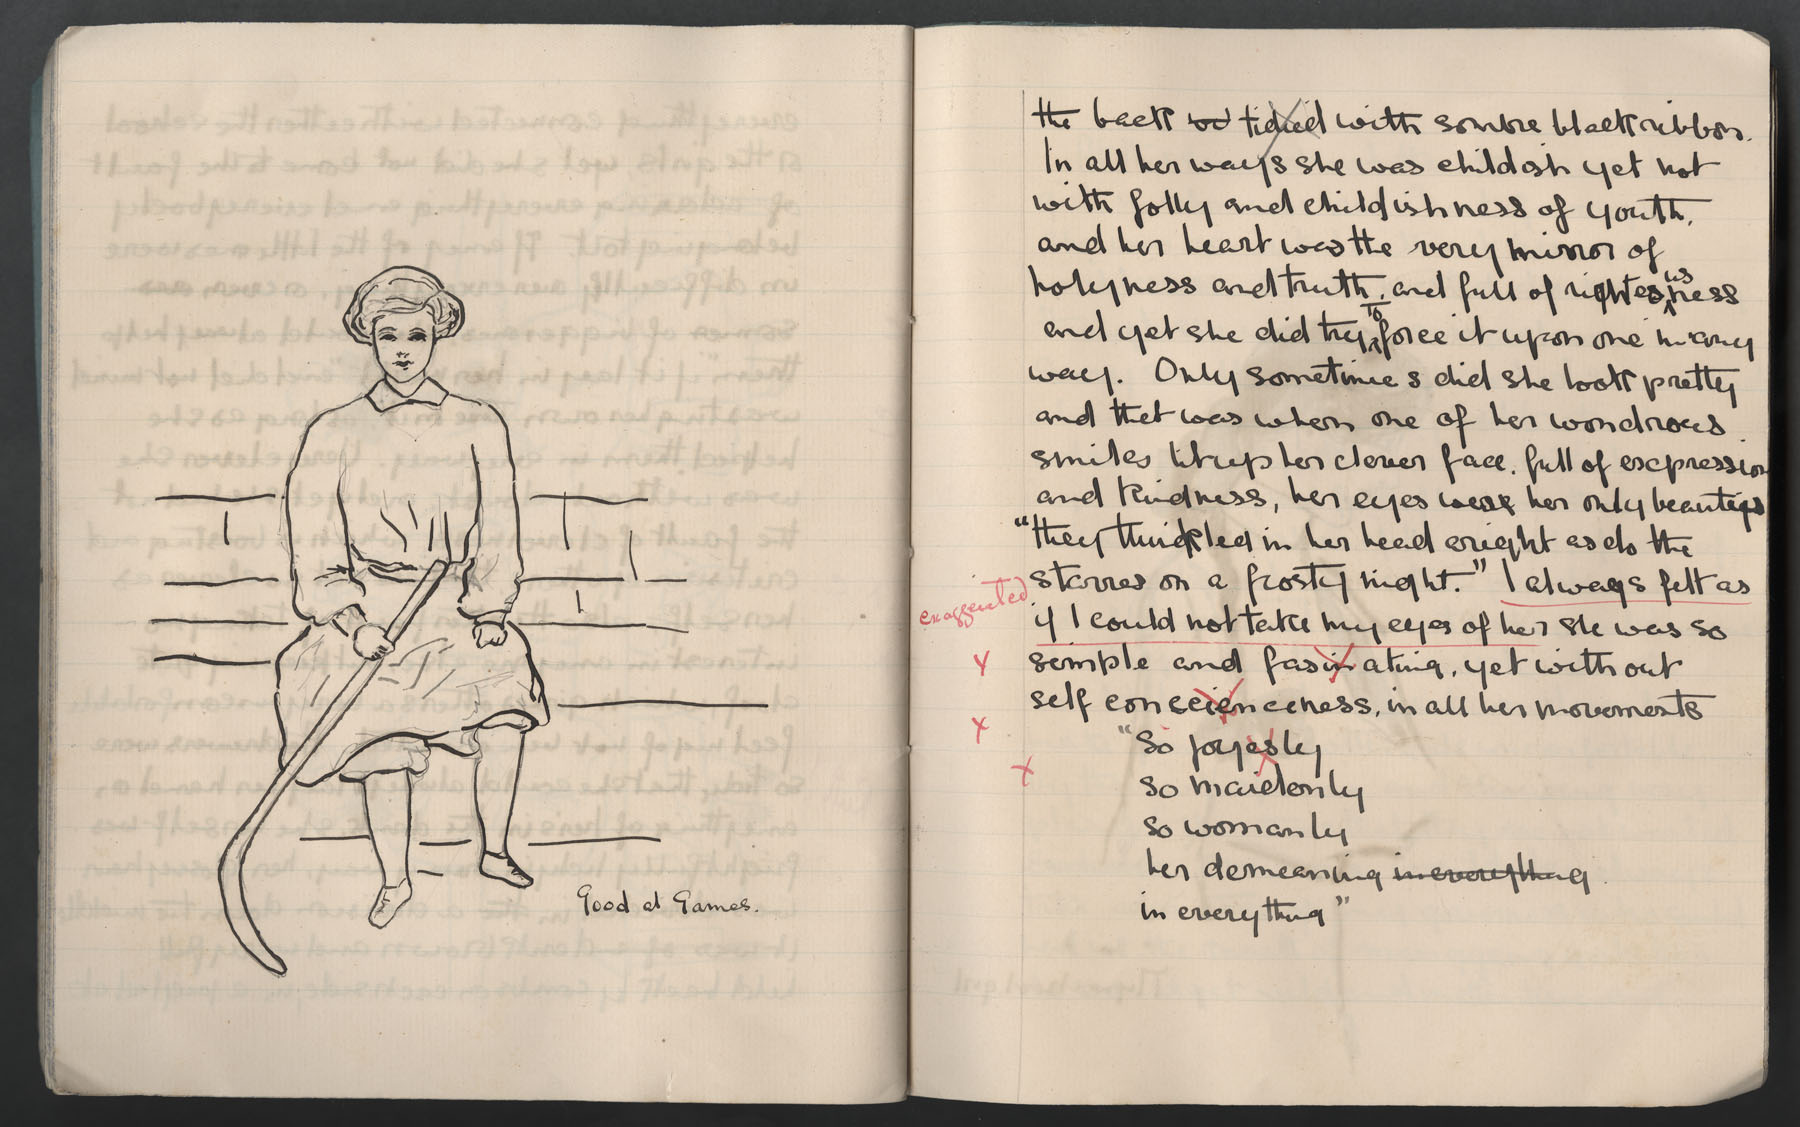 Good at Games.
the back tidied with sombre black ribbon.
In all her ways she was childish yet not
with folly and childishness of youth,
and her heart was the very mirror of
holyness and truth, and full of rightesusness
and yet she did try to force it upon one in any
way. Only sometimes did she look pretty
and that was when one of her wondrous
smiles lit up her clever face, full of expression
and kindness, her eyes were her only beauty
"they twinkled in her head aright as do the
starres on a frosty night." I always felt as
exaggerated
if I could not take my eyes of her she was so
x simple and fasinating, yet without
x self conscienceness, in all her movements
x "So joyesly
so maidenly
so womanly
her demeaning in everything
in everything"